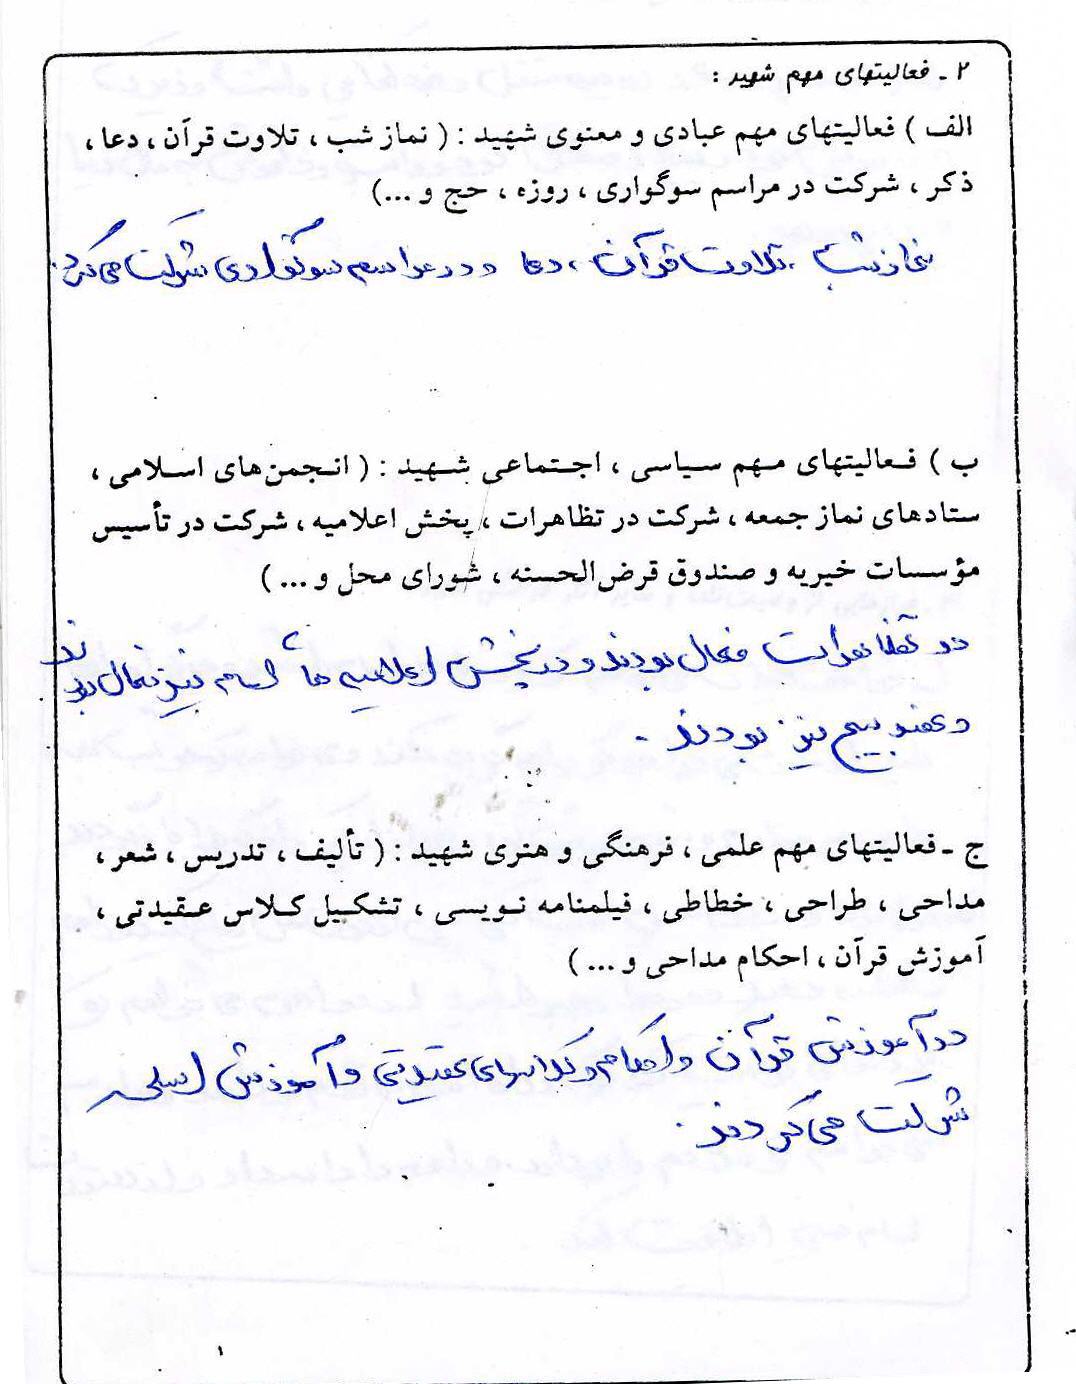 ۲ ـ فعالیتهای مهم شهید :
الف ) فعالیتهای مهم عبادی و معنوی شهید : ( نماز شب ، تلاوت قرآن ، دعا ،
ذکر ، شرکت در مراسم سوگواری ، روزه ، حج و ...)
نماز شب ، تلاوت قرآن ، دعا و در مراسم سوگواری شرکت می کرد .
ب ) فعالیتهای مهم سیاسی ، اجتماعی شهید : ( انجمن‌های اسلامی ،
ستادهای نماز جمعه ، شرکت در تظاهرات ، پخش اعلامیه ، شرکت در تأسیس
مؤسسات خیریه و صندوق قرض‌الحسنه ، شورای محل و ... )
در تظاهرات فعال بودند و در پخش اعلامیه ها امام نیز فعال بودند
و عضو بسیج نیز بودند .
ج ـ فعالیتهای مهم علمی ، فرهنگی و هنری شهید : ( تألیف ، تدریس ، شعر ،
مداحی ، طراحی ، خطاطی ، فیلمنامه نویسی ، تشکیل کلاس عقیدتی ،
آموزش قرآن ، احکام مداحی و ... )
در آموزش قرآن و احکام و کلاسهای عقیدتی و آموزش
شرکت می کردند .
۱